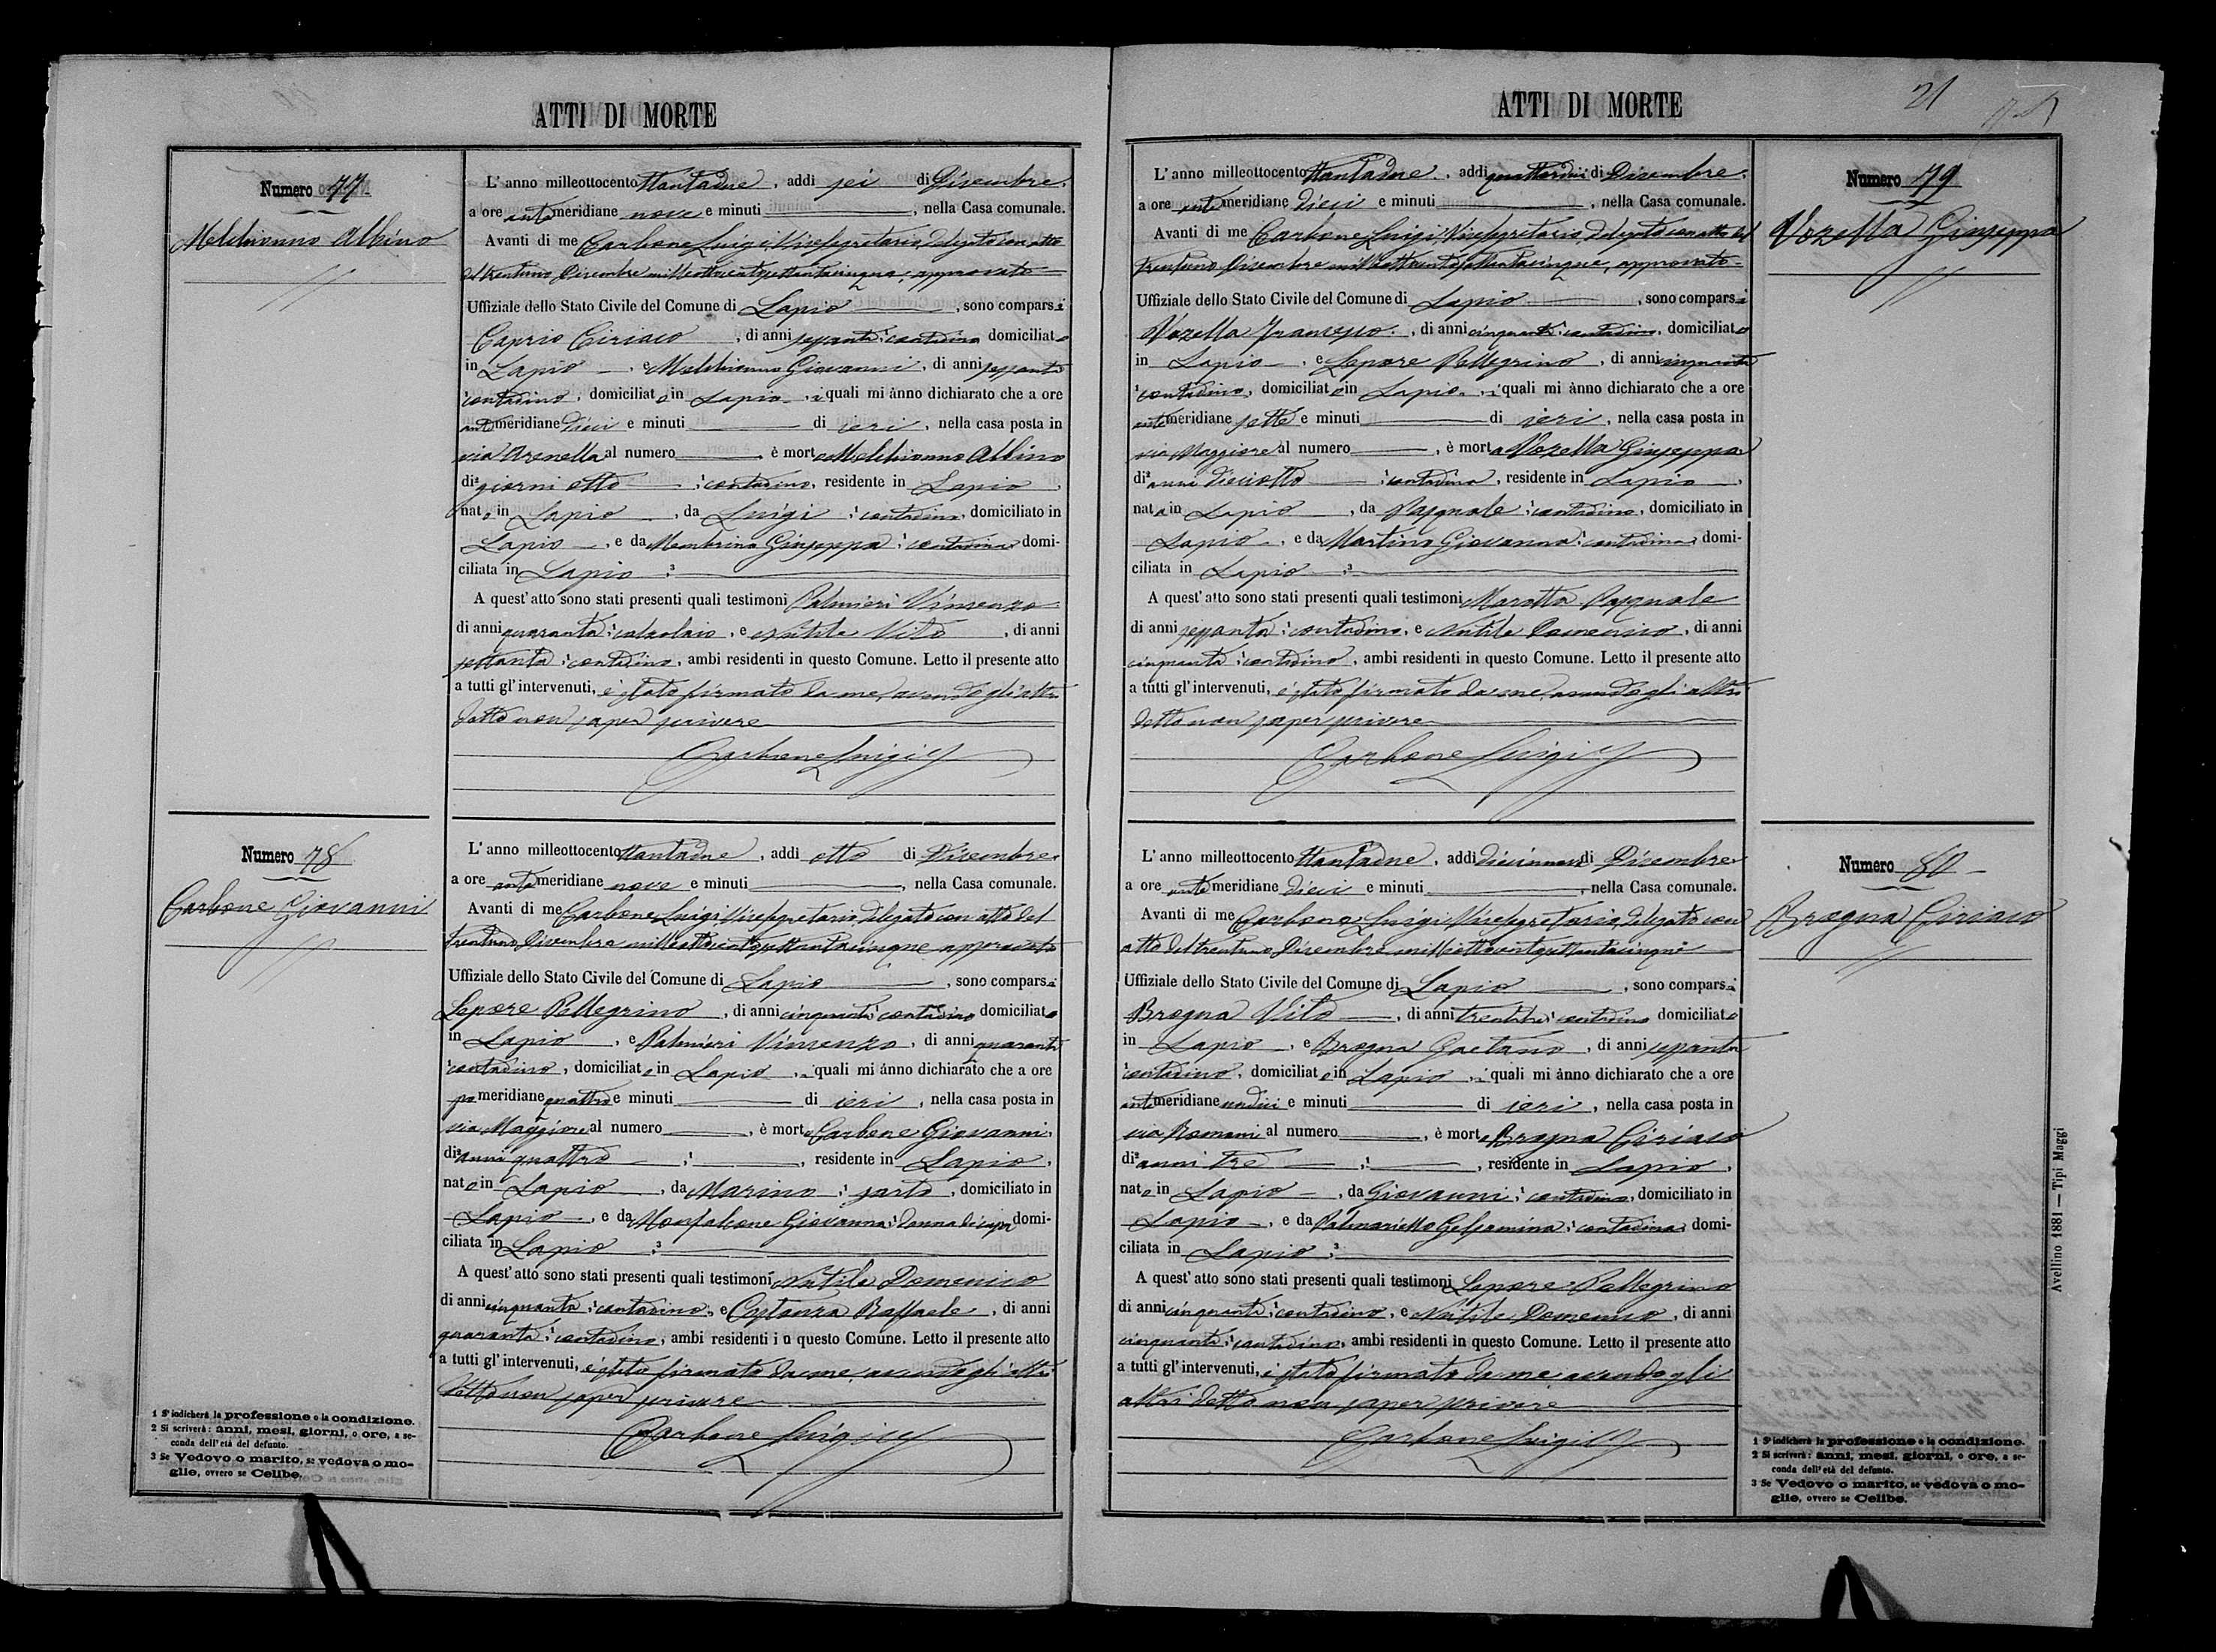 ATTI DI MORTE
Numero 77
Melchionno Albino
L'anno milleottocento ottantadue, addì sei di Dicembre,
a ore antemeridiane nove e minuti, nella Casa comunale.
Avanti di me Carbone Luigi, Vicesegretario, delegato con atto
del trentuno Dicembre milleottocentosettantacinque, approvato
Uffiziale dello Stato Civile del Comune di Lapio, sono comparsi
Caprio Ciriaco, di anni sessanta, contadino domiciliato
in Lapio, e Melchionno Giovanni, di anni sessanta
contadino, domiciliato in Lapio, i quali mi ànno dichiarato che a ore
antemeridiane dieci e minuti di ieri, nella casa posta in
via Arenella al numero, è morto Melchionno Albino
di giorni otto, contadino, residente in Lapio,
nato in Lapio, da Luigi, contadino, domiciliato in
Lapio, e da Membrino Giuseppa, contadina, domi-
ciliata in Lapio
A quest'atto sono stati presenti quali testimoni Palmieri Vincenzo
di anni quaranta, calzolaio, e Nutile Vito, di anni
settanta, contadino, ambi residenti in questo Comune. Letto il presente atto
a tutti gl'intervenuti, è stato firmato da me, avendo gli altri
detto non saper scrivere
Carbone Luigi
Numero 78
Carbone Giovanni
L'anno milleottocento ottantadue, addì otto di Dicembre
a ore antemeridiane nove e minuti, nella Casa comunale.
Avanti di me Carbone Luigi Vicesegretario, delegato con atto del
trentuno Dicembre milleottocentosettantacinque approvato
Uffiziale dello Stato Civile del Comune di Lapio, sono comparsi
Lepore Pellegrino, di anni cinquanta, contadino domiciliato
in Lapio, e Palmieri Vincenzo, di anni quaranta
contadino, domiciliato in Lapio, i quali mi ànno dichiarato che a ore
pomeridiane quattro e minuti di ieri, nella casa posta in
via Maggiore al numero, è morto Carbone Giovanni,
di anni quattro, residente in Lapio,
nato in Lapio, da Marino, sarto, domiciliato in
Lapio, e da Monfalcone Giovanna, donna di casa domi-
ciliata in Lapio
A quest'atto sono stati presenti quali testimoni Nutile Domenico
di anni cinquanta, contadino, e Costanza Raffaele, di anni
quaranta, contadino, ambi residenti in questo Comune. Letto il presente atto
a tutti gl'intervenuti, è stato firmato da me, avendo gli altri
detto non saper scrivere
Carbone Luigi
1 S'indicherà la professione o la condizione.
2 Si scriverà: anni, mesi, giorni, o ore, a se-
conda dell'età del defunto.
3 Se Vedovo o marito, se vedova o mo-
glie, ovvero se Celibe.
ATTI DI MORTE
21
Numero 79
Vozella Giuseppa
L'anno milleottocento ottantadue, addì quattordici di Dicembre,
a ore antemeridiane dieci e minuti, nella Casa comunale.
Avanti di me Carbone Luigi, Vicesegretario, delegato con atto del
trentuno Dicembre milleottocentosettantacinque, approvato
Uffiziale dello Stato Civile del Comune di Lapio, sono comparsi
Vozella Francesco, di anni cinquanta, contadino, domiciliato
in Lapio, e Lepore Pellegrino, di anni cinquanta
contadino, domiciliato in Lapio, i quali mi ànno dichiarato che a ore
antemeridiane sette e minuti di ieri, nella casa posta in
via Maggiore al numero, è morta Vozella Giuseppa
di anni dieciotto, contadina, residente in Lapio,
nata in Lapio, da Pasquale, contadino, domiciliato in
Lapio, e da Martino Giovanna, contadina, domi-
ciliata in Lapio
A quest'atto sono stati presenti quali testimoni Marotta Pasquale
di anni sessanta, contadino, e Nutile Domenico, di anni
cinquanta, contadino, ambi residenti in questo Comune. Letto il presente atto
a tutti gl'intervenuti, è stato firmato da me, avendo gli altri
detto non saper scrivere
Carbone Luigi
Numero 80
Brogna Ciriaco
L'anno milleottocento ottantadue, addì diecinnove di Dicembre
a ore antemeridiane dieci e minuti, nella Casa comunale.
Avanti di me Carbone Luigi Vicesegretario, delegato con
atto del trentuno Dicembre milleottocentosettantacinque
Uffiziale dello Stato Civile del Comune di Lapio, sono comparsi
Brogna Vito, di anni trentatre, contadino domiciliato
in Lapio, e Brogna Gaetano, di anni sessanta
contadino, domiciliato in Lapio, i quali mi ànno dichiarato che a ore
antemeridiane undici e minuti di ieri, nella casa posta in
via Romani al numero, è morto Brogna Ciriaco
di anni tre, residente in Lapio,
nato in Lapio, da Giovanni, contadino, domiciliato in
Lapio, e da Palmariello Gelsomina, contadina, domi-
ciliata in Lapio
A quest'atto sono stati presenti quali testimoni Lepore Pellegrino
di anni cinquanta, contadino, e Nutile Domenico, di anni
cinquanta, contadino, ambi residenti in questo Comune. Letto il presente atto
a tutti gl'intervenuti, è stato firmato da me avendo gli
altri detto non saper scrivere
Carbone Luigi
1 S'indicherà la professione o la condizione.
2 Si scriverà: anni, mesi, giorni, o ore, a se-
conda dell'età del defunto.
3 Se Vedovo o marito, se vedova o mo-
glie, ovvero se Celibe.
Avellino 1881 — Tipi Maggi